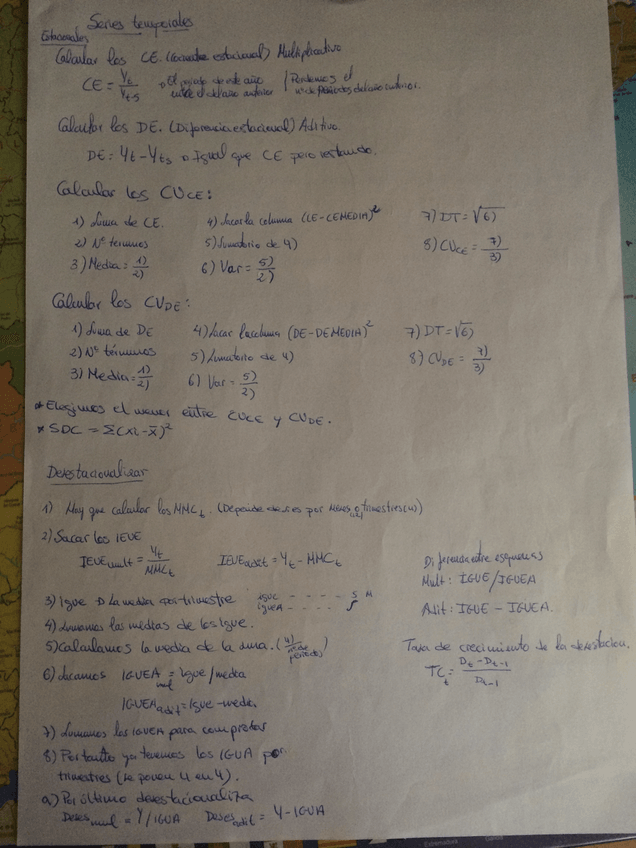 Series temporales
Estacionales
Calcular los CE. (cociente estacional) Multiplicativo
CE = Yt / Yt-s → El periodo de este año entre el del año anterior / Perdemos el nº de periodos del año anterior.
Calcular los DE. (Diferencia estacional) Aditivo.
DE = Yt - Yt-s → Igual que CE pero restando.
Calcular los CV_CE:
1) Suma de CE.
2) Nº terminos
3) Media = 1) / 2)
4) Sacar la columna (CE-CEMEDIA)²
5) Sumatorio de 4)
6) Var = 5) / 2)
7) DT = √6)
8) CV_CE = 7) / 3)
Calcular los CV_DE:
1) Suma de DE
2) Nº términos
3) Media = 1) / 2)
4) Sacar la columna (DE-DEMEDIA)²
5) Sumatorio de 4)
6) Var = 5) / 2)
7) DT = √6)
8) CV_DE = 7) / 3)
* Elegimos el menor entre CV_CE y CV_DE.
* SDC = Σ(xi - x̄)²
Desestacionalizar
1) Hay que calcular los MMCt. (Depende de si es por meses o trimestres (4))
2) Sacar los IEVE
IEVE mult = Yt / MMCt
IEVE adit = Yt - MMCt
3) Igve → La media por trimestre
IGVE - - - - S M
IGVEA - - - - S
4) Sumamos las medias de los Igve.
5) Calculamos la media de la suma. (4) / nº de periodos)
6) Sacamos IGVEA mul = Igve/media
IGVEA adit = Igve - media.
7) Sumamos los IGVEA para comprobar
8) Por tanto ya tenemos los IGVA por
trimestres (se ponen 4 en 4).
9) Por último desestacionaliza
Deses mul = Y/IGVA Deses adit = Y - IGVA
Diferencia entre esquemas
Mult: IGVE/IGVEA
Adit: IGVE - IGVEA.
Tasa de crecimiento de la desestacion.
TCt = Dt - Dt-1 / Dt-1